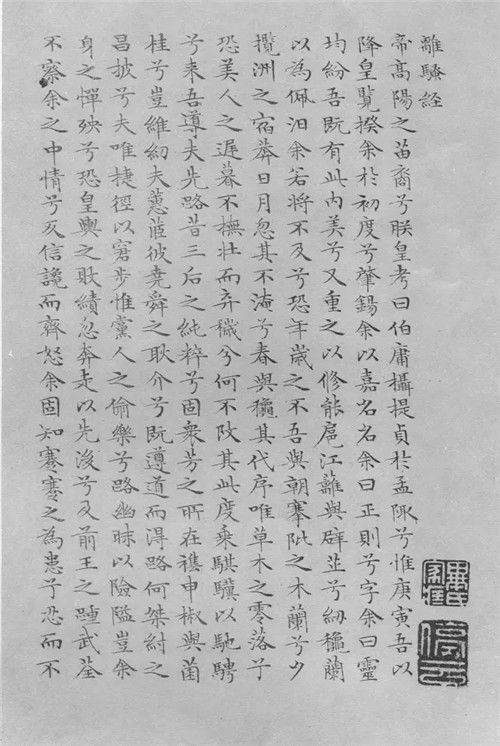 離騷経
帝高陽之苗裔兮朕皇考曰伯庸攝提貞於孟陬兮惟庚寅吾以
降皇覽揆余於初度兮肇錫余以嘉名名余曰正則兮字余曰靈
均紛吾既有此内美兮又重之以修能扈江蘺與辟芷兮紉穐蘭
以為佩汩余若將不及兮恐年歲之不吾與朝搴阰之木蘭兮夕
攬洲之宿莽日月忽其不淹兮春與穐其代序唯草木之零落兮
恐美人之遲暮不撫壯而弃穢兮何不改其此度乘騏驥以馳騁
兮来吾導夫先路昔三后之純粹兮固衆芳之所在襍申椒與菌
桂兮豈維紉夫蕙茝彼堯舜之耿介兮既遵道而得路何桀紂之
昌披兮夫唯捷徑以窘步惟黨人之偷樂兮路幽昧以險隘豈余
身之憚殃兮恐皇輿之敗績忽奔走以先後兮及前王之踵武荃
不察余之中情兮反信讒而齊怒余固知謇謇之為患兮忍而不
停雲